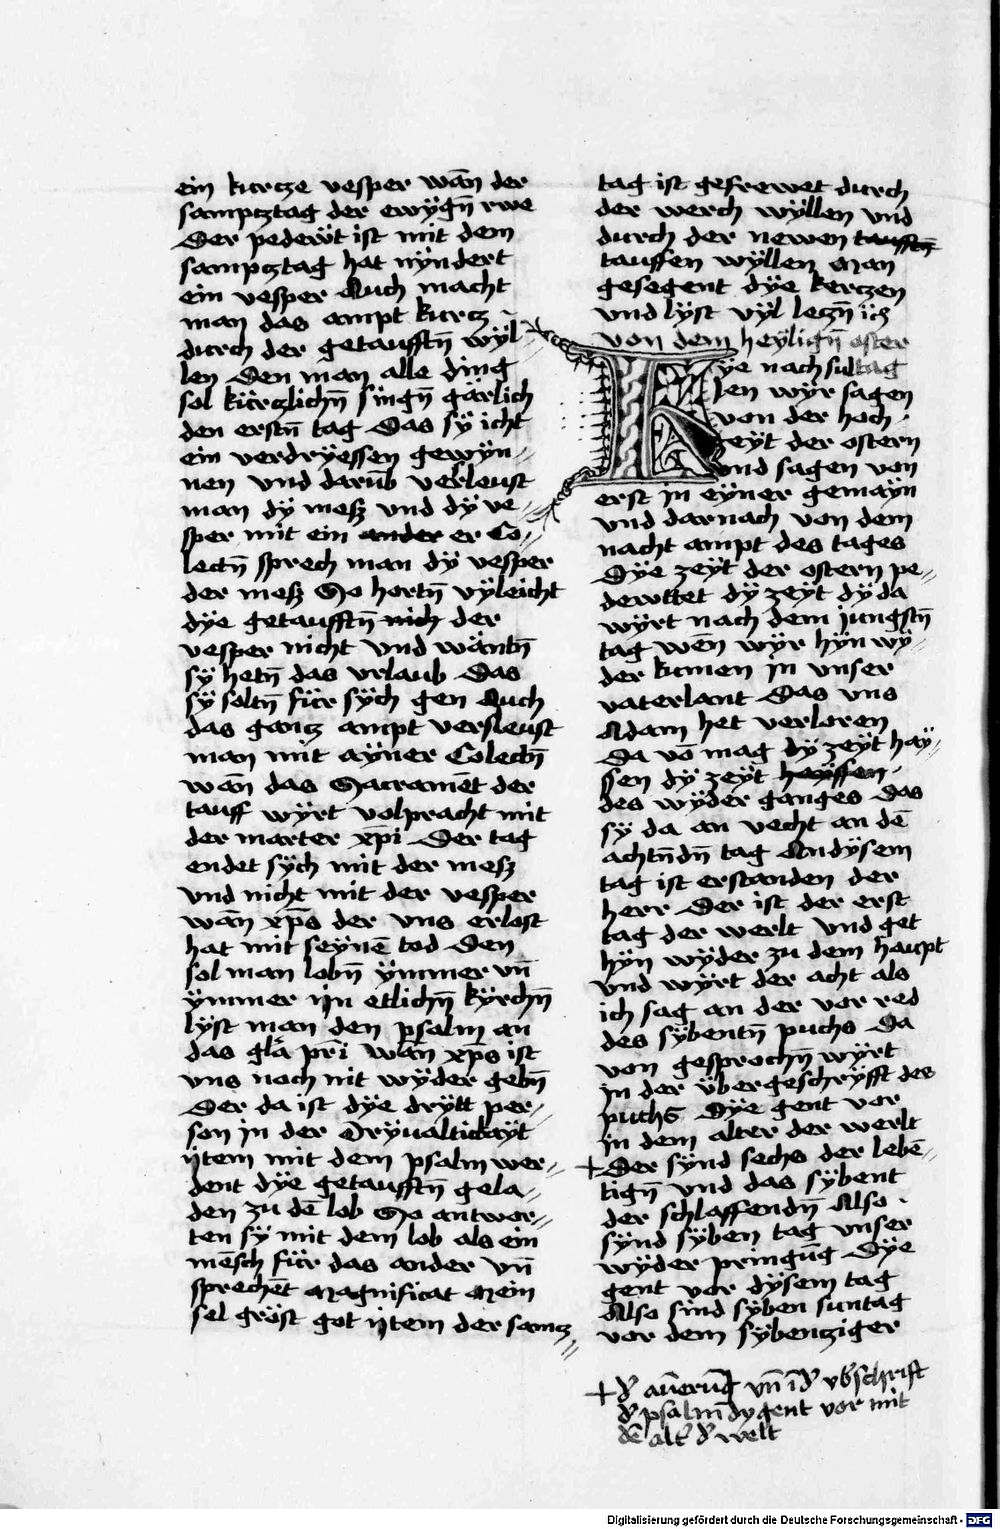 ein kurcze vesper wān der
sampcztag der ewÿgn̄ rwe
Der pedewt ist mit dem
sampcztag hat nÿndert
ein vesper Auch macht
man das ampt kurcz
durch der getaufftn̄ wÿl
len Den man alle ding
sol kürczlichn̄ singn̄ gärlich
den erstn̄ tag Das sÿ icht
ein verdrÿessen gewÿn⸗
nen vnd darūb verleust
man dÿ mesz vnd dÿ ve⸗
sper mit ein ander er Co⸗
lectn̄ sprech man dÿ vesper
der mesz So hortn̄ vÿleicht
dÿe getaufftn̄ nich der
vesper nicht vnd wäntn̄
sÿ hetn̄ das vrlaub Das
sÿ soltn̄ für sÿch gen Auch
das gancz ampt versleust
man mit aÿner Colectn̄
wān das Sacramēt der
tauff wÿrt volpracht mit
der marter xp̄i Der tag
endet sÿch mit der mesz
vnd nicht mit der vesper
wān xp̄s der vns erlost
hat mit seÿnē tod Den
sol man lobn̄ ÿmmer vn̄
ÿmmer in etlichn̄ kÿrchn̄
lÿst man den psalm an
das glā pr̄i wān xp̄s ist
vns noch nit wÿder gebn̄
Der da ist dÿe drÿtt per⸗
son in der Drÿualtickaÿt
ÿtem mit dem psalm wer⸗
dent dÿe getaufftn̄ gela⸗
den zu dē lob So antwor⸗
ten sÿ mit dem lob als ein
mēsch für das ander vn̄
sprechēt Magnificat Mein
sel gröst got ÿtem der samcz⸗
tag ist gefrewet durch
der werch wÿllen vnd
durch der newen taufftn̄
tauffen wÿllen Man
gesegent dÿe kerczen
vnd lÿst vÿl leczn̄ ic̄z
von dem heÿlign̄ oster
Dÿe nach sul tag
len wÿr sagen
von der hoch
zeÿt der ostern
vnd sagen von
erst in eÿner gemaÿn
vnd darnach von dem
nacht ampt des tages
Dÿe zeÿt der ostern pe⸗
dewttet dÿ zeÿt dÿ da
wÿrt nach dem jungstn̄
tag wen̄ wÿr hÿn wÿ⸗
der kumen in vnser
vaterlant Das vns
Adam het verloren
Da vō mag dÿ zeÿt haÿ⸗
ssen dÿ zeÿt heÿssen
des wÿder ganges Das
sÿ da an vecht an dē
achtn̄dn̄ tag An dÿsem
tag ist erstanden der
herr Der ist der erst
tag der werlt vnd get
hÿn wÿder zu dem haupt
vnd wÿrt der acht als
ich sag an der vor red
des sÿbentn̄ puchs Da
von gesprochn̄ wÿrt
in der übergeschrÿfft des
puchs Dÿe gent vor
in dem alter der werlt
+Der sÿnd sechs der lebē⸗
tign̄ vnd das sÿbent
der schlaffendn̄ Also
sÿnd sÿben tag vnser
wÿder pringūg Dÿe
gent vor dÿsem tag
Also sind sÿben suntag
vor dem sÿbencziger
+ d' vn̄ i d' vb'schrift
d' psalm̄ dy gent vor mit
dē alt' d' welt
Digitalisierung gefördert durch die Deutsche Forschungsgemeinschaft - DFG